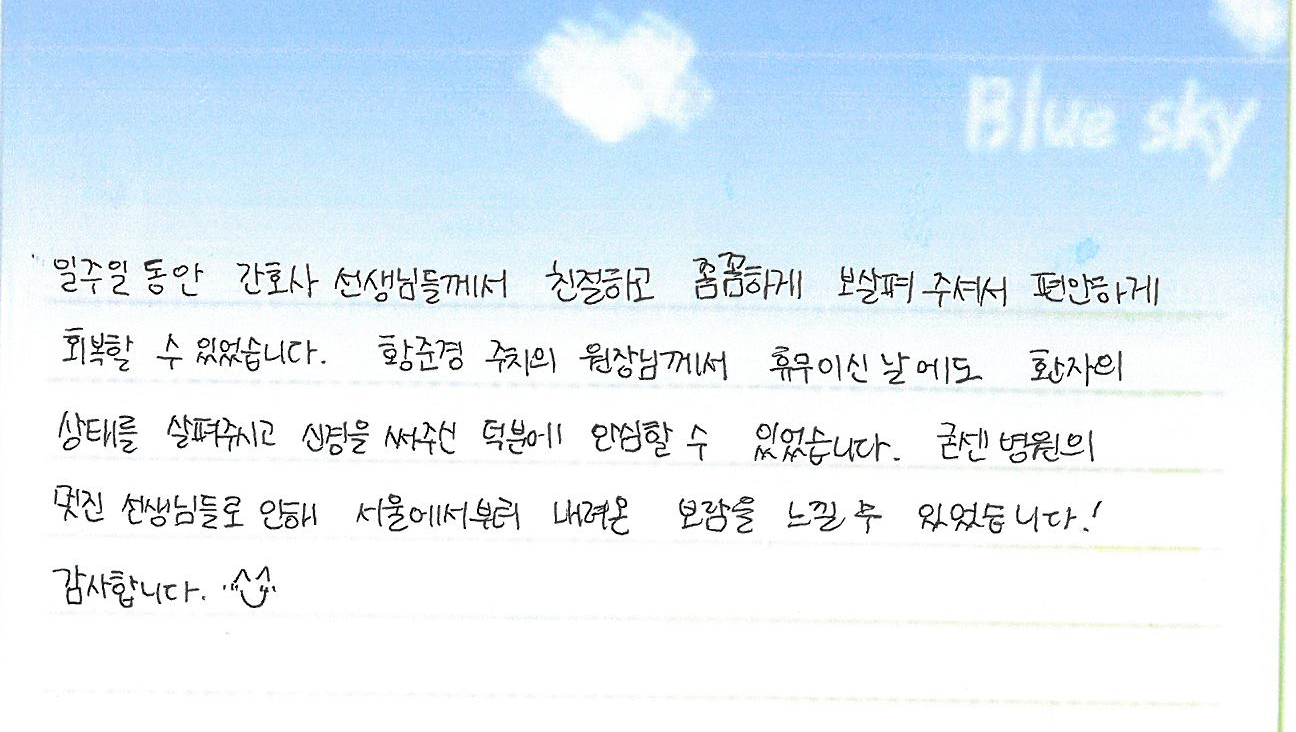 Blue sky
일주일 동안 간호사 선생님들께서 친절하고 꼼꼼하게 보살펴 주셔서 편안하게
회복할 수 있었습니다. 황준경 주치의 원장님께서 휴무이신 날에도 환자의
상태를 살펴주시고 신경을 써주신 덕분에 안심할 수 있었습니다. 굳센병원의
멋진 선생님들로 인해 서울에서부터 내려온 보람을 느낄 수 있었습니다!
감사합니다.